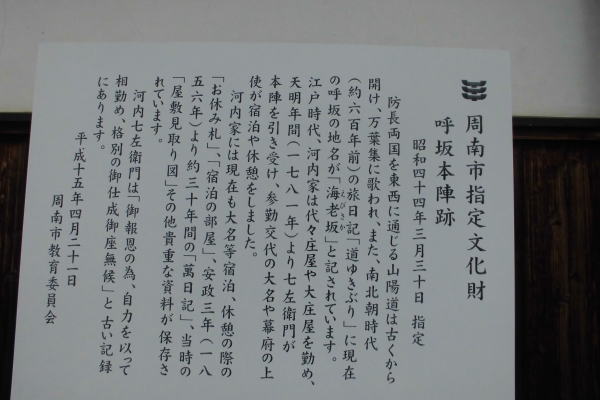 周南市指定文化財
呼坂本陣跡
昭和四十四年三月三十日 指定
防長両国を東西に通じる山陽道は古くから
開け、万葉集に歌われ、また、南北朝時代
(約六百年前)の旅日記「道ゆきぶり」に現在
の呼坂の地名が「海老坂」と記されています。
えびさか
江戸時代、河内家は代々庄屋や大庄屋を勤め、
天明年間(一七八一年)より七左衛門が
本陣を引き受け、参勤交代の大名や幕府の上
使が宿泊や休憩をしました。
河内家には現在も大名等宿泊、休憩の際の
「お休み札」、「宿泊の部屋」、安政三年(一八
五六年)より約三十年間の「萬日記」、当時の
「屋敷見取り図」その他貴重な資料が保存さ
れています。
河内七左衛門は「御報恩の為、自力を以って
相勤め、格別の御仕成御座無候」と古い記録
にあります。
平成十五年四月二十一日
周南市教育委員会